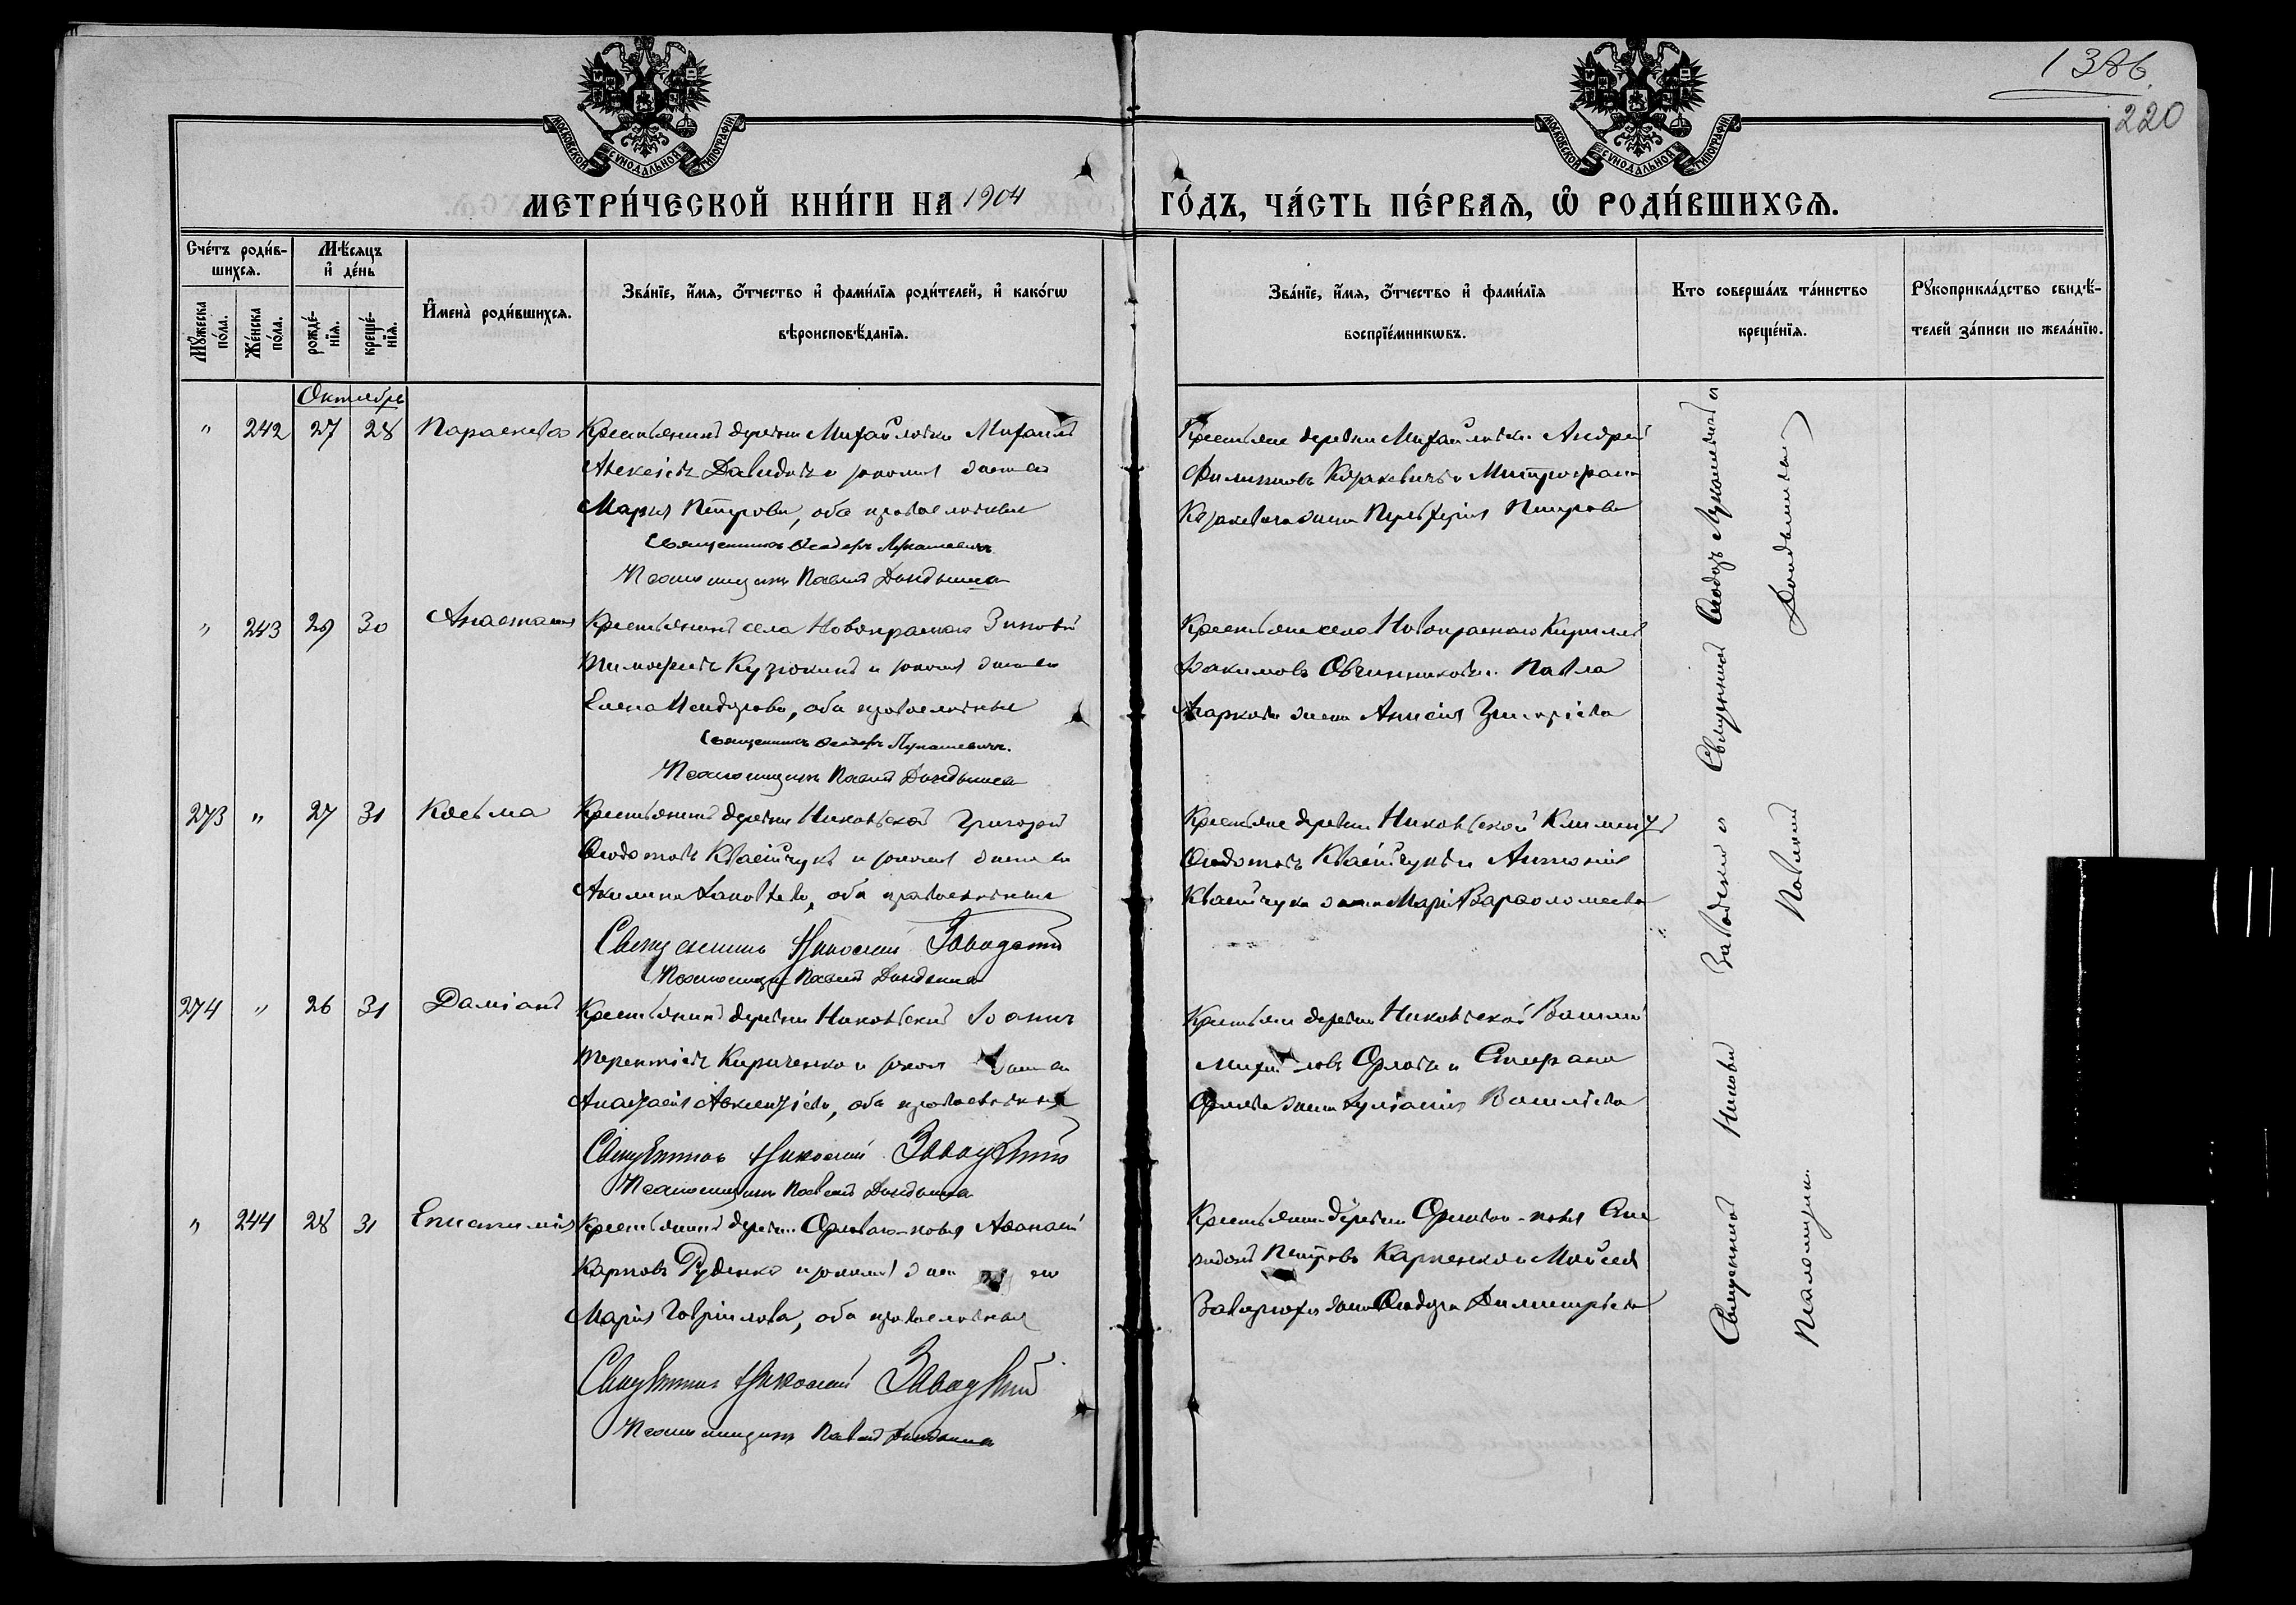 1386
220
МОСКОВСКОЙ СѴНОДАЛЬНОЙ ТИПОГРАФІИ
МОСКОВСКОЙ СѴНОДАЛЬНОЙ ТИПОГРАФІИ
МЕТРИ́ЧЕСКОЙ КНИ́ГИ НА 1904 ГО́ДЪ, ЧА́СТЬ ПЕ́РВАѦ, Ѡ РОДИ́ВШИХСѦ.
Сче́тъ роди́в-
шихсѧ.
Мꙋжеска по́ла.
Же́нска по́ла.
Мѣ́сѧцъ
и҆ де́нь
рожде́-
нїѧ.
креще́-
нїѧ.
И҆мена̀ роди́вшихсѧ.
Зва́нїе, и҆́мѧ, ѻ҆́тчество и҆ фами́лїѧ роди́телей, и҆ како́гѡ
вѣроисповѣ́данїѧ.
Зва́нїе, и҆́мѧ, ѻ҆́тчество и҆ фами́лїѧ
воспрїе́мникѡвъ.
Кто соверша́лъ та́инство
креще́нїѧ.
Рꙋкоприкла́дство свидѣ́-
телей за́писи по жела́нїю.
Октябрь
" 242 27 28 Параскева
Крестьянинъ деревни Михайловки Михаилъ
Алексіевъ Давидовъ и законная жена его
Марія Петрова, оба православные
Священникъ Ѳеодоръ Лукашевичъ
Псаломщикъ Павелъ
Крестьяне деревни Михайловки Андрей
Филипповъ и Митрофана
жена Пульхерія Петрова
" 243 29 30 Анастасія
Крестьянинъ села Новокраснаго Зиновій
Тимофеевъ Кузюкинъ и законная жена его
Елена, оба православные
Священникъ Ѳеодоръ Лукашевичъ.
Псаломщикъ Павелъ
Крестьяне села Новокраснаго Кириллъ
Іоакимовъ Овчинниковъ и Павла
жена Анисія Григоріева
273 " 27 31 Косьма
Крестьянинъ деревни Николаевской Григорій
Ѳедотовъ Квасничукъ и законная жена его
Акилина Іаковлева, оба православные
Священникъ Николай Заводскій
Псаломщикъ Павелъ
Крестьяне деревни Николаевской Климентъ
Ѳедотовъ и Антонія
жена Марія Варѳоломеева
274 " 26 31 Даміанъ
Крестьянинъ деревни Николаевской Іоаннъ
Терентіевъ Кириченко и законная жена его
Анастасія, оба православные
Священникъ Николай Заводскій
Псаломщикъ Павелъ
Крестьяне деревни Николаевской Василій
Михайловъ Орловъ и Стефана
Орлова жена Іуліанія Василіева
" 244 28 31
Крестьянинъ деревни Аѳанасій
Карповъ Руденко и законная жена его
Марія Гавріилова, оба православные
Священникъ Николай Заводскій
Псаломщикъ Павелъ
Крестьяне деревни Спи
ридонъ Петровъ Карпенко и Моисея
жена Ѳеодора Димитріева
Священникъ Николай Заводскій и Священникъ Ѳеодоръ Лукашевичъ и
Псаломщикъ Павелъ